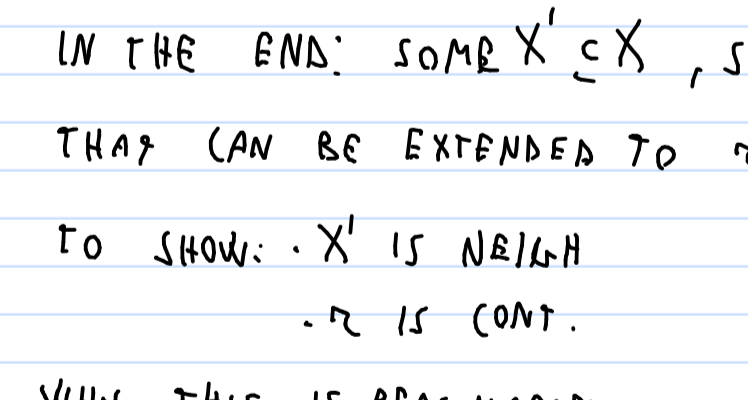 IN THE END: SOME X' ⊆ X , S
THAT CAN BE EXTENDED TO r
TO SHOW: · X' IS NEIGH
· r IS CONT.
THIS IS